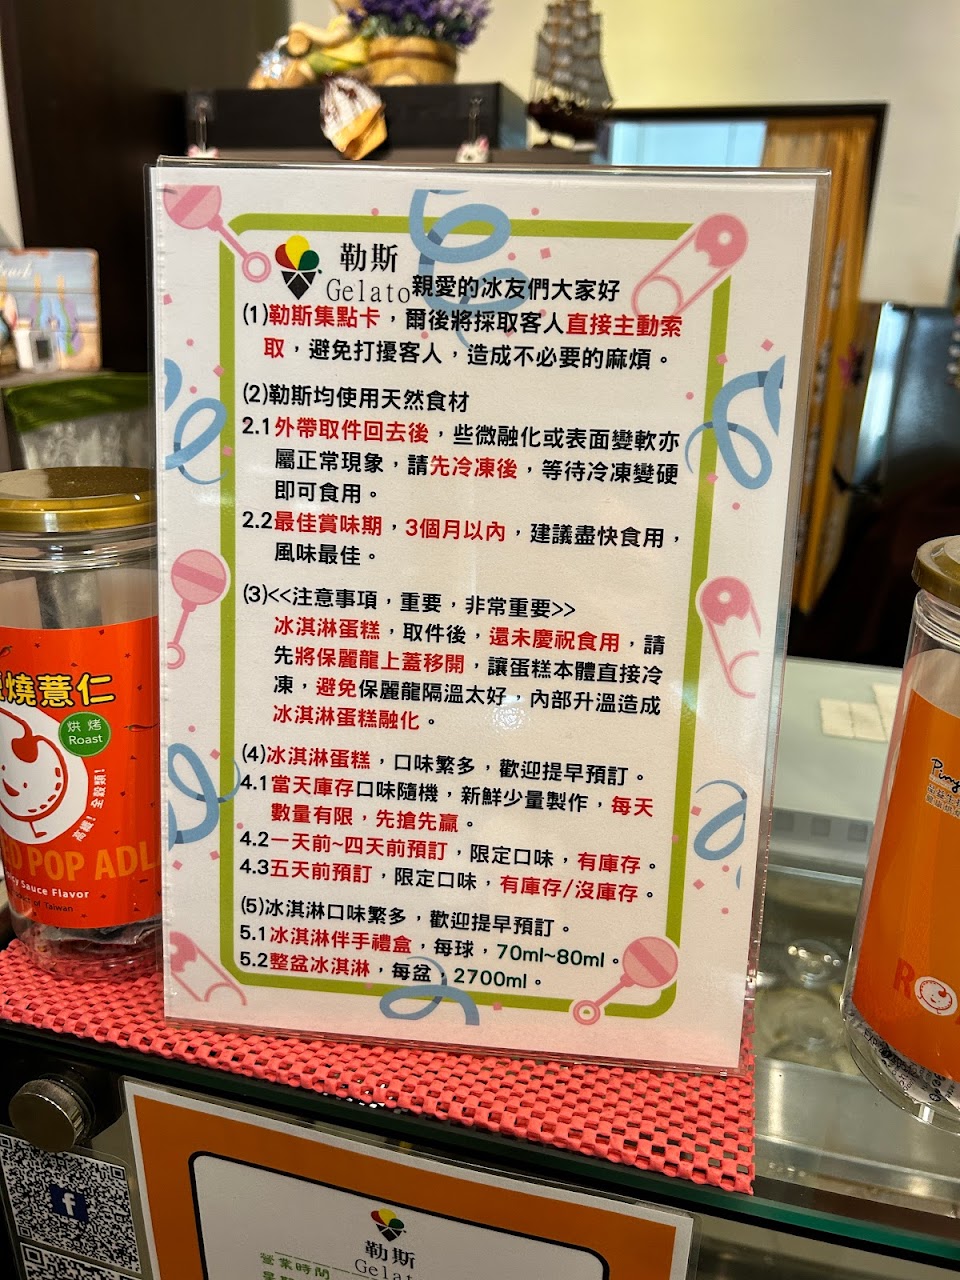 勒斯
Gelato
親愛的冰友們大家好
(1)勒斯集點卡，爾後將採取客人直接主動索
取，避免打擾客人，造成不必要的麻煩。
(2)勒斯均使用天然食材
2.1外帶取件回去後，些微融化或表面變軟亦
屬正常現象，請先冷凍後，等待冷凍變硬
即可食用。
2.2最佳賞味期，3個月以內，建議盡快食用，
風味最佳。
(3)<<注意事項，重要，非常重要>>
冰淇淋蛋糕，取件後，還未慶祝食用，請
先將保麗龍上蓋移開，讓蛋糕本體直接冷
凍，避免保麗龍隔溫太好，內部升溫造成
冰淇淋蛋糕融化。
(4)冰淇淋蛋糕，口味繁多，歡迎提早預訂。
4.1當天庫存口味隨機，新鮮少量製作，每天
數量有限，先搶先贏。
4.2一天前~四天前預訂，限定口味，有庫存。
4.3五天前預訂，限定口味，有庫存/沒庫存。
(5)冰淇淋口味繁多，歡迎提早預訂。
5.1冰淇淋伴手禮盒，每球，70ml~80ml。
5.2整盆冰淇淋，每盆，2700ml。
燒薏仁
烘烤
Roast
高纖！全穀類！
POP ADL
Sauce Flavor
of Taiwan
勒斯
Gelat
營業時間